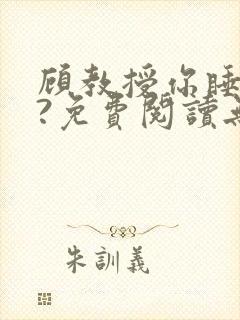 顾教授你睡
?免費閱讀
朱訓義